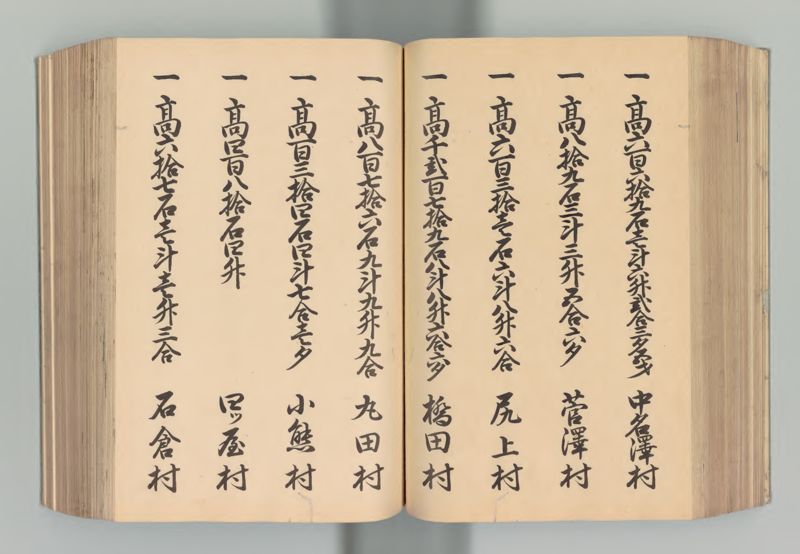 一 高六百六拾九石壱斗六升弐合三夕五才 中名澤村
一 高八拾九石三斗三升五合六夕 菅澤村
一 高六百三拾壱石六斗八升六合 尻上村
一 高千弐百七拾九石八斗八升六合六夕 橋田村
一 高八百七拾六石九斗九升九合 丸田村
一 高百三拾四石四斗七合壱夕 小熊村
一 高四百八拾石四升 四ッ屋村
一 高六拾七石壱斗壱升三合 石倉村